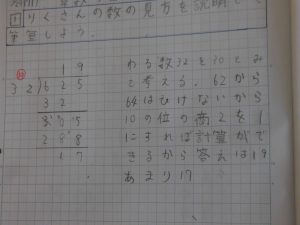 1 りくさんの数の見方を説明して
筆算しよう。
19
32)625
32
305
288
17
わる数32を30とみ
て考える。62から
64はひけないから
10の位の商2を1
にすれば計算がで
きるから答えは19
あまり17